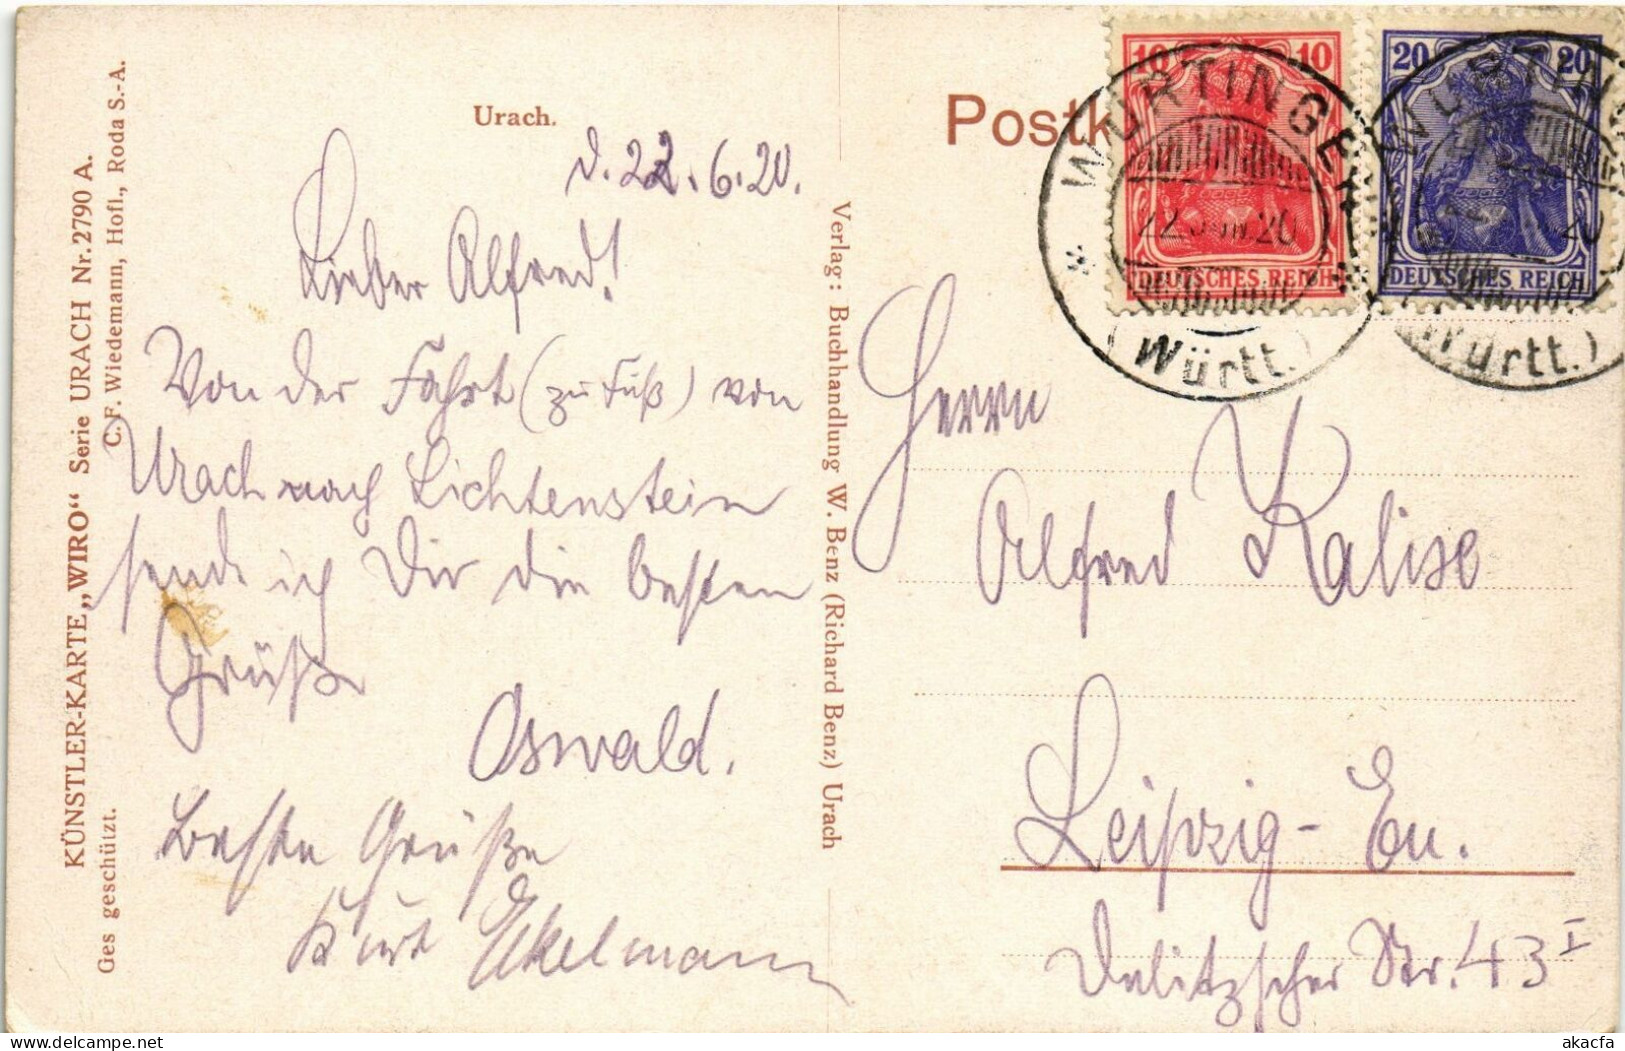 KÜNSTLER-KARTE „WIRO“ Serie URACH Nr. 2790 A.
C. F. Wiedemann, Hofl., Roda S.-A.
Ges geschützt.
Urach.
d. 22.6.20.
Lieber Alfred!
Von der Fahrt (zu Fuß) von
Urach nach Lichtenstein
sende ich Dir die besten
Grüße
Oswald.
Beste Grüße
Kurt Ekelmann
Verlag: Buchhandlung W. Benz (Richard Benz) Urach
Postk
10 10
DEUTSCHES REICH
20 20
DEUTSCHES REICH
WÜRTINGEN
22 JUN. 20
(Württ.)
WÜRTING
20
Württ.)
Herrn
Alfred Kalise
Leipzig - Eu.
Delitzscher Str. 43 I
akacfa
delcampe.net